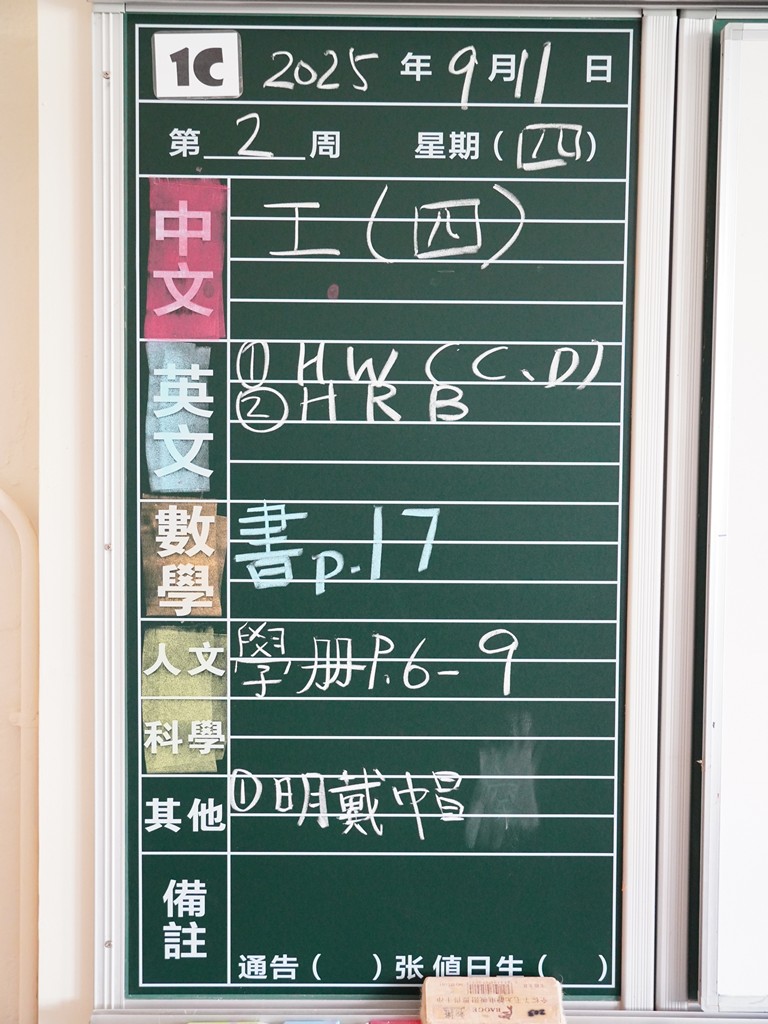 1C 2025 年 9 月 11 日
第 2 周 星期(四)
中文 工(四)
英文 ① HW (C、D)
② HRB
數學 書 p.17
人文 學册 P.6-9
科學
其他 ① 明戴中冒
備註
通告( )张 值日生( )
BAOGE